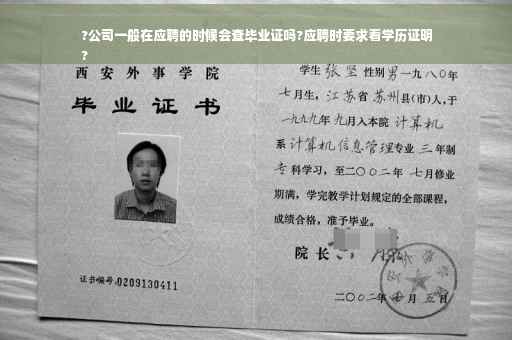 ?公司一般在应聘的时候会查毕业证吗?应聘时要求看学历证明
?
西安外事学院
毕业证书
证书编号:0209130411
学生 张坚 性别 男 一九八〇年
七月生, 江苏省 苏州 县(市)人, 于
一九九九年 九月入本院 计算机
系 计算机信息管理 专业 三 年制
专 科学习, 至二〇〇二年 七月修业
期满, 学完教学计划规定的全部课程,
成绩合格, 准予毕业。
院长
二〇〇二年 月 五日